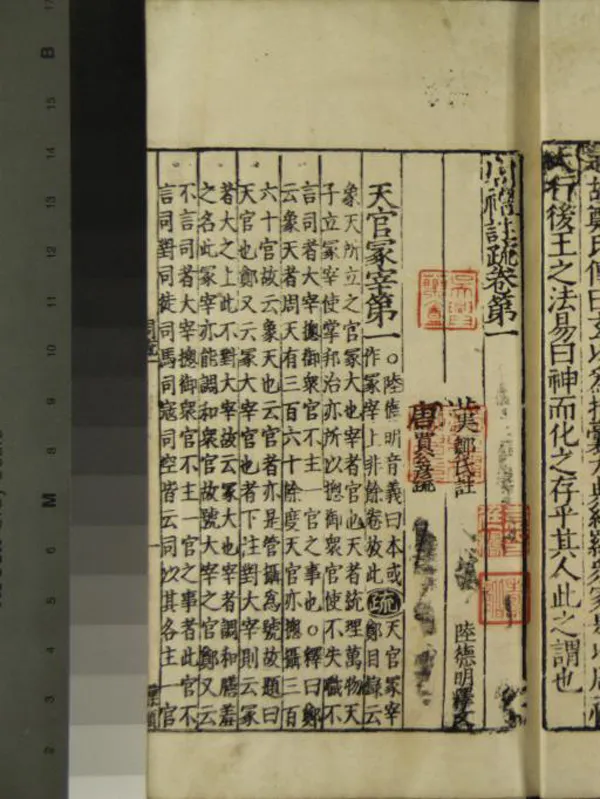 氏行後王之法易曰神而化之存乎其人此之謂也
周禮註疏卷第一
漢鄭氏註
陸德明釋文
唐賈公彥疏
天官冢宰第一
○陸德明音義曰本或
作冢宰上非餘卷放此
疏
天官冢宰
鄭目錄云
象天所立之官冢大也宰者官也天者統理萬物天
子立冢宰使掌邦治亦所以摠御衆官使不失職不
言司者大宰摠御衆官不主一官之事也○釋曰鄭
云象天者周天有三百六十餘度天官亦摠攝三百
六十官故云象天也云官者亦是管攝爲號故題曰
天官也鄭又云冢大宰者也下注對大宰則云冢
者大之上此不對大宰故云冢大也宰者調和膳羞
之名此冢宰亦能調和衆官故號大宰之官鄭又云
不言司者大宰摠御衆官不主一官之事者此官不
言司對司徒司馬司寇司空皆云司以其各主一官